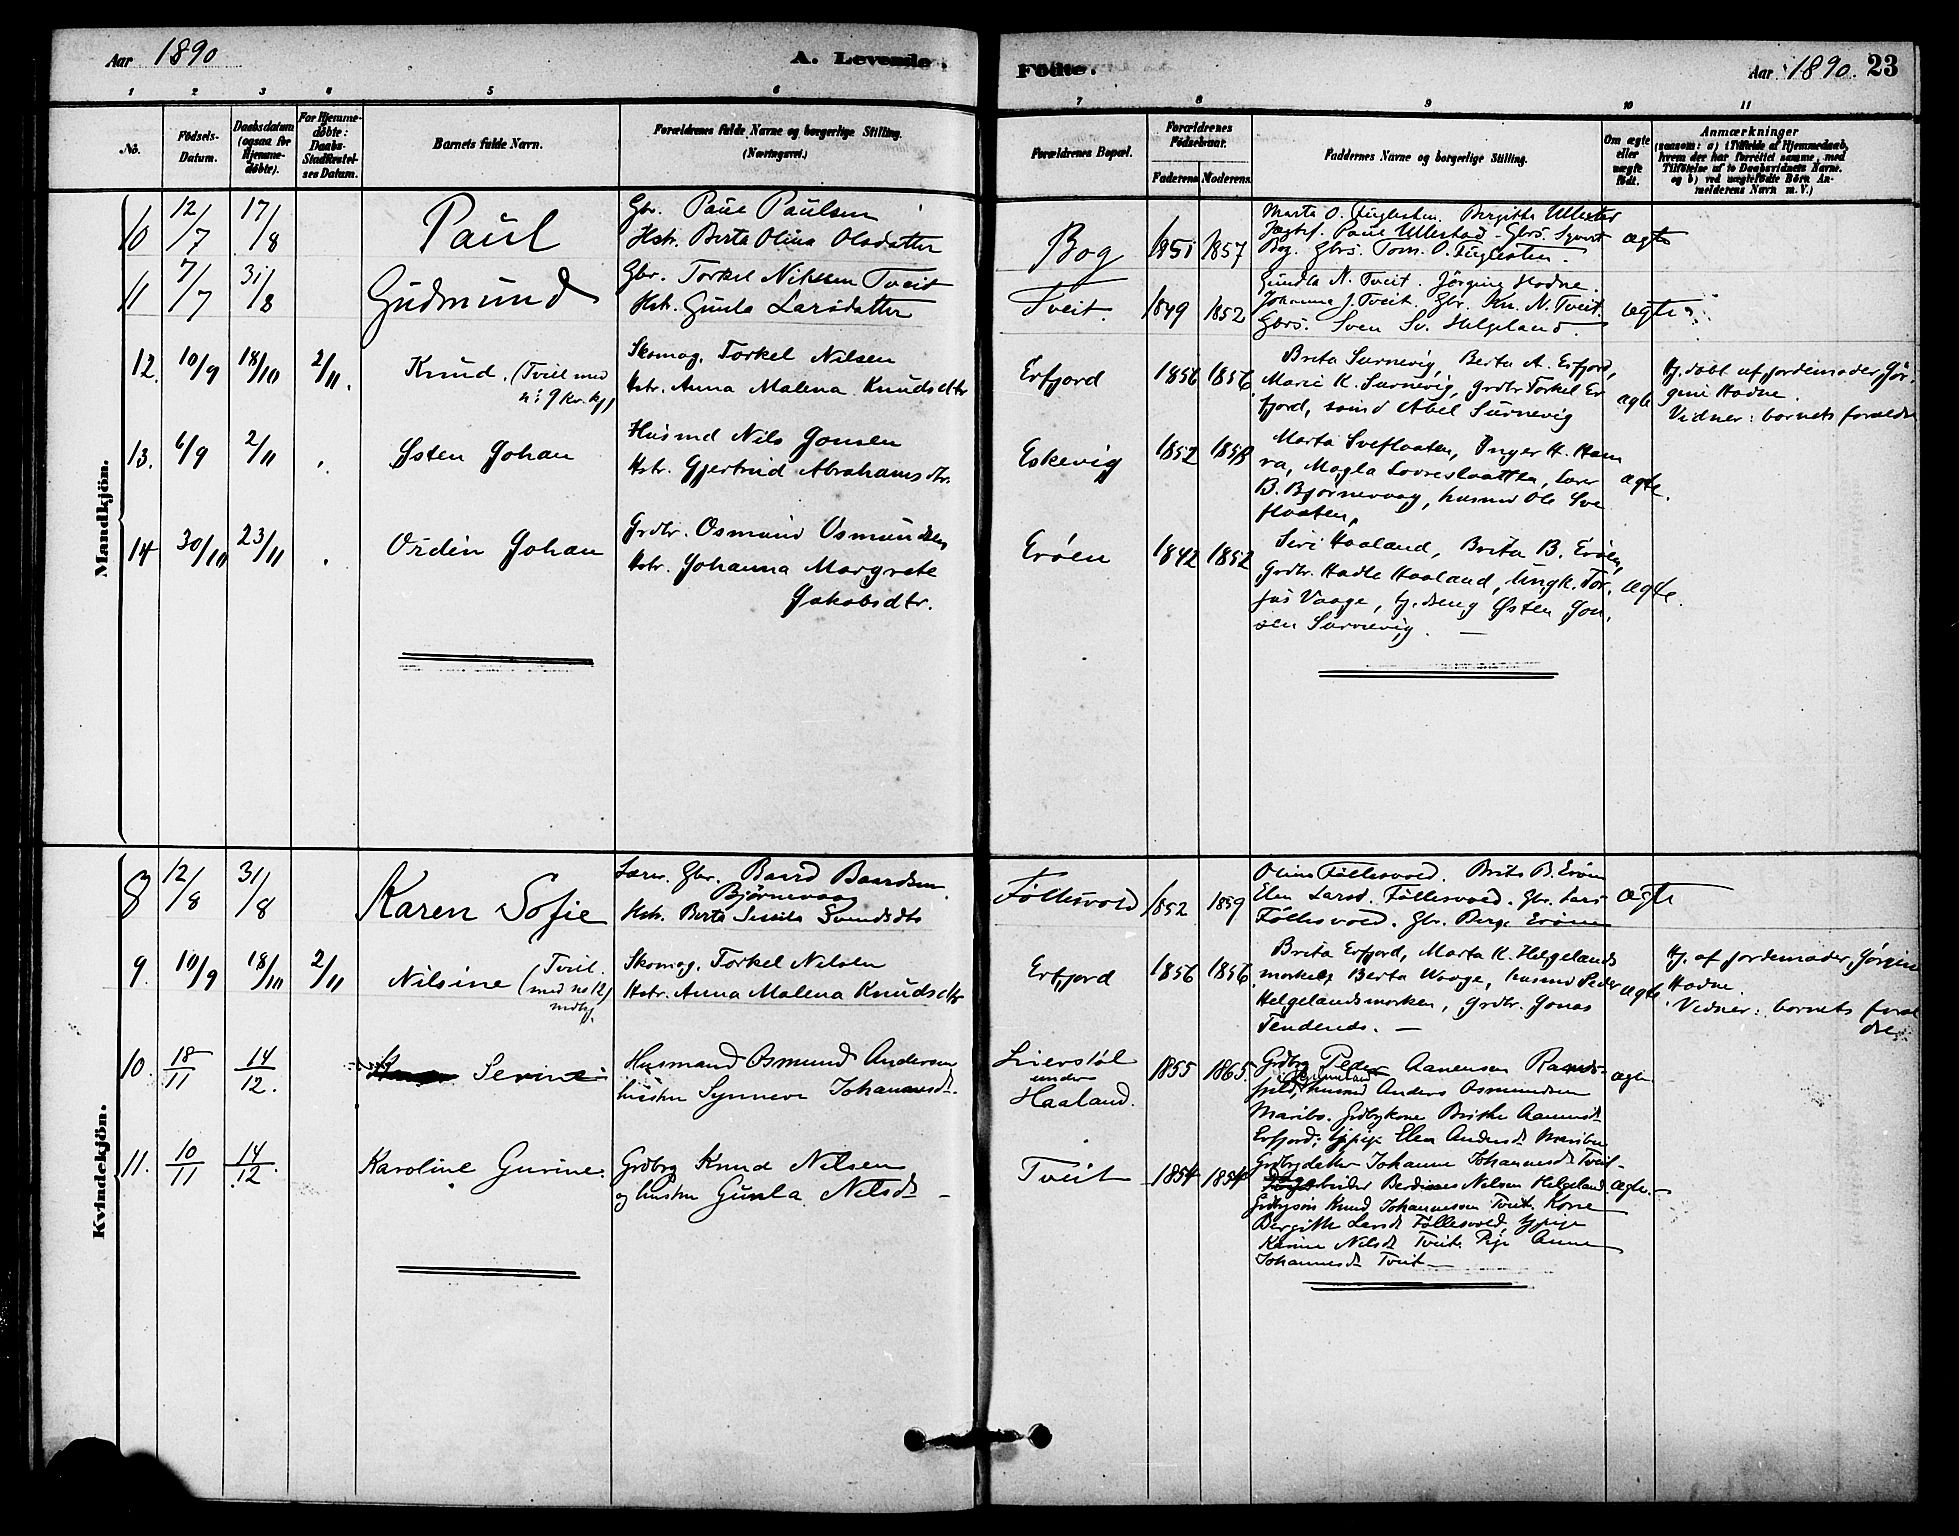 Aar 1890
A. Levende
Fødte.
Aar 1890. 23
1 2 3 4 5 6 7 8 9 10 11
No.
Fødsels-
Datum.
Daabsdatum
(ogsaa for
Hjemme-
døbte).
For Hjemme-
døbte:
Daabs-
Stadfæstel-
ses Datum.
Barnets fulde Navn.
Forældrenes fulde Navne og borgerlige Stilling.
(Næringsvei.)
Forældrenes Bopæl.
Forældrenes
Fødselsaar.
Faderens. Moderens.
Faddernes Navne og borgerlige Stilling.
Om ægte
eller
uægte
født.
Anmærkninger
(saasom: a) i Tilfælde af Hjemmedaab,
hvem der har forrettet samme, med
Tilføielse af to Daabsvidnets Navne,
og b) ved uægtefødte Børn An-
melderens Navn m. V.)
Mandkjön.
10 12/7 17/8 Paul
Gbr. Paul Paulsen
Hstr. Berta Olina Olsdatter
Bog 1851 1857
Marta O. Fuglesten. Birgitha Ullestad
Jægtef. Paul Ullestad. Gbrs. Sjvert
Bog. Gbrs. Tom. O. Fuglesten.
ægte
11 7/7 31/8 Gudmund
Gbr. Torkel Nilssen Tveit
Hstr. Gunla Larsdatter
Tveit. 1849 1852
Gundla N. Tveit. Jørgine Hodne.
Johanna J. Tveit. Gbr. Kn. N. Tveit.
Gbrs. Sven Sv. Helgeland.
ægte
12. 10/9 18/10 2/11. Knud. (Tvill med
n: 9 kv. kj)
Skomag. Torkel Nilsen
Hstr. Anna Malena Knudsdtr
Erfjord 1856 1856
Brita Surnevig, Berta A. Erfjord,
Marie K. Surnevig, Grdbr Torkel Er
fjord, som d Abel Surnevig
ægte
Hj. døbt af jordemoder Jør-
gine Hodne.
Vidner: barnets foræld
13. 6/9 2/11 Østen Johan
Husmd Nils Jonsen
Hstr. Gjertrud Abrahamsdtr.
Eskevig 1852 1858
Marta Svefloaten, Inger H. Ham
ra, Magla Lovreslaatten, Lærer
B. Bjørnevaag, husmd Ole Sve
floaten,
ægte.
14 30/10 23/11 Ordin Johan
Grdbr. Osmund Osmundsen
Hstr. Johanna Margrete
Jakobsdtr.
Erøen 1842 1852
Siri Haaland, Brita B. Erøen,
Grdbr. Hadle Haaland, Ungk. Tor
jus Vaage, tj. dreng Østen Jon
sen Surnevig.
ægte.
Kvindekjön.
8 12/8 31/8 Karen Sofie
Lærer. Gbr. Baard Baardsen
Bjørnevaag
Hstr. Berta Sesilia Svendsdtr
Føllesvold 1852 1859
Olina Føllesvold. Brita B. Erøen
Elen Larsd. Føllesvold. Gbr. Lars
Føllesvold. Gbr. Berge Erøen
ægte
9. 10/9 18/10 2/11 Nilsine (Tvil.
med no 12
mdkj.
Skomag. Torkel Nilsen
Hstr. Anna Malena Knudsdtr
Erfjord 1856 1856
Brita Erfjord, Marta K. Helgelands
morken Berta Vaage, husmd Peder
Helgelandsmorken, Grdbr. Jonas
Tendenes.
ægte
Hj. af jordemoder, Jørgine
Hodne.
Vidner: barnets foræl
dre
10. 18/11 14/12. Serine
Husmand Osmund Andersen
hustru Synneve Johannesdt.
Lierstøl
under
Haaland. 1855 1865.
Grdbrg Peder Aanensen
husmd Anders Osmundsen
Maribo. Grdbrkone Brithe Aanensdt
Erfjord; tjpige Elen Andersdt Maribo
ægte
11. 10/11 14/12. Karoline Gurine.
Grdbrg Knud Nilsen
og hustru Gunla Nilsdt
Tveit 1854 1854
Grdbrdatter Johanne Johannesdt Tveit
Berdines Nilsen Helgeland
Grdbrsøn Knud Johannessen Tveit. Kone
Bergithe Larsdt Føllesvold, tjpige
Karine Nilsdt Tveit. Pige Anne
Johannesdt Tveit
ægte.